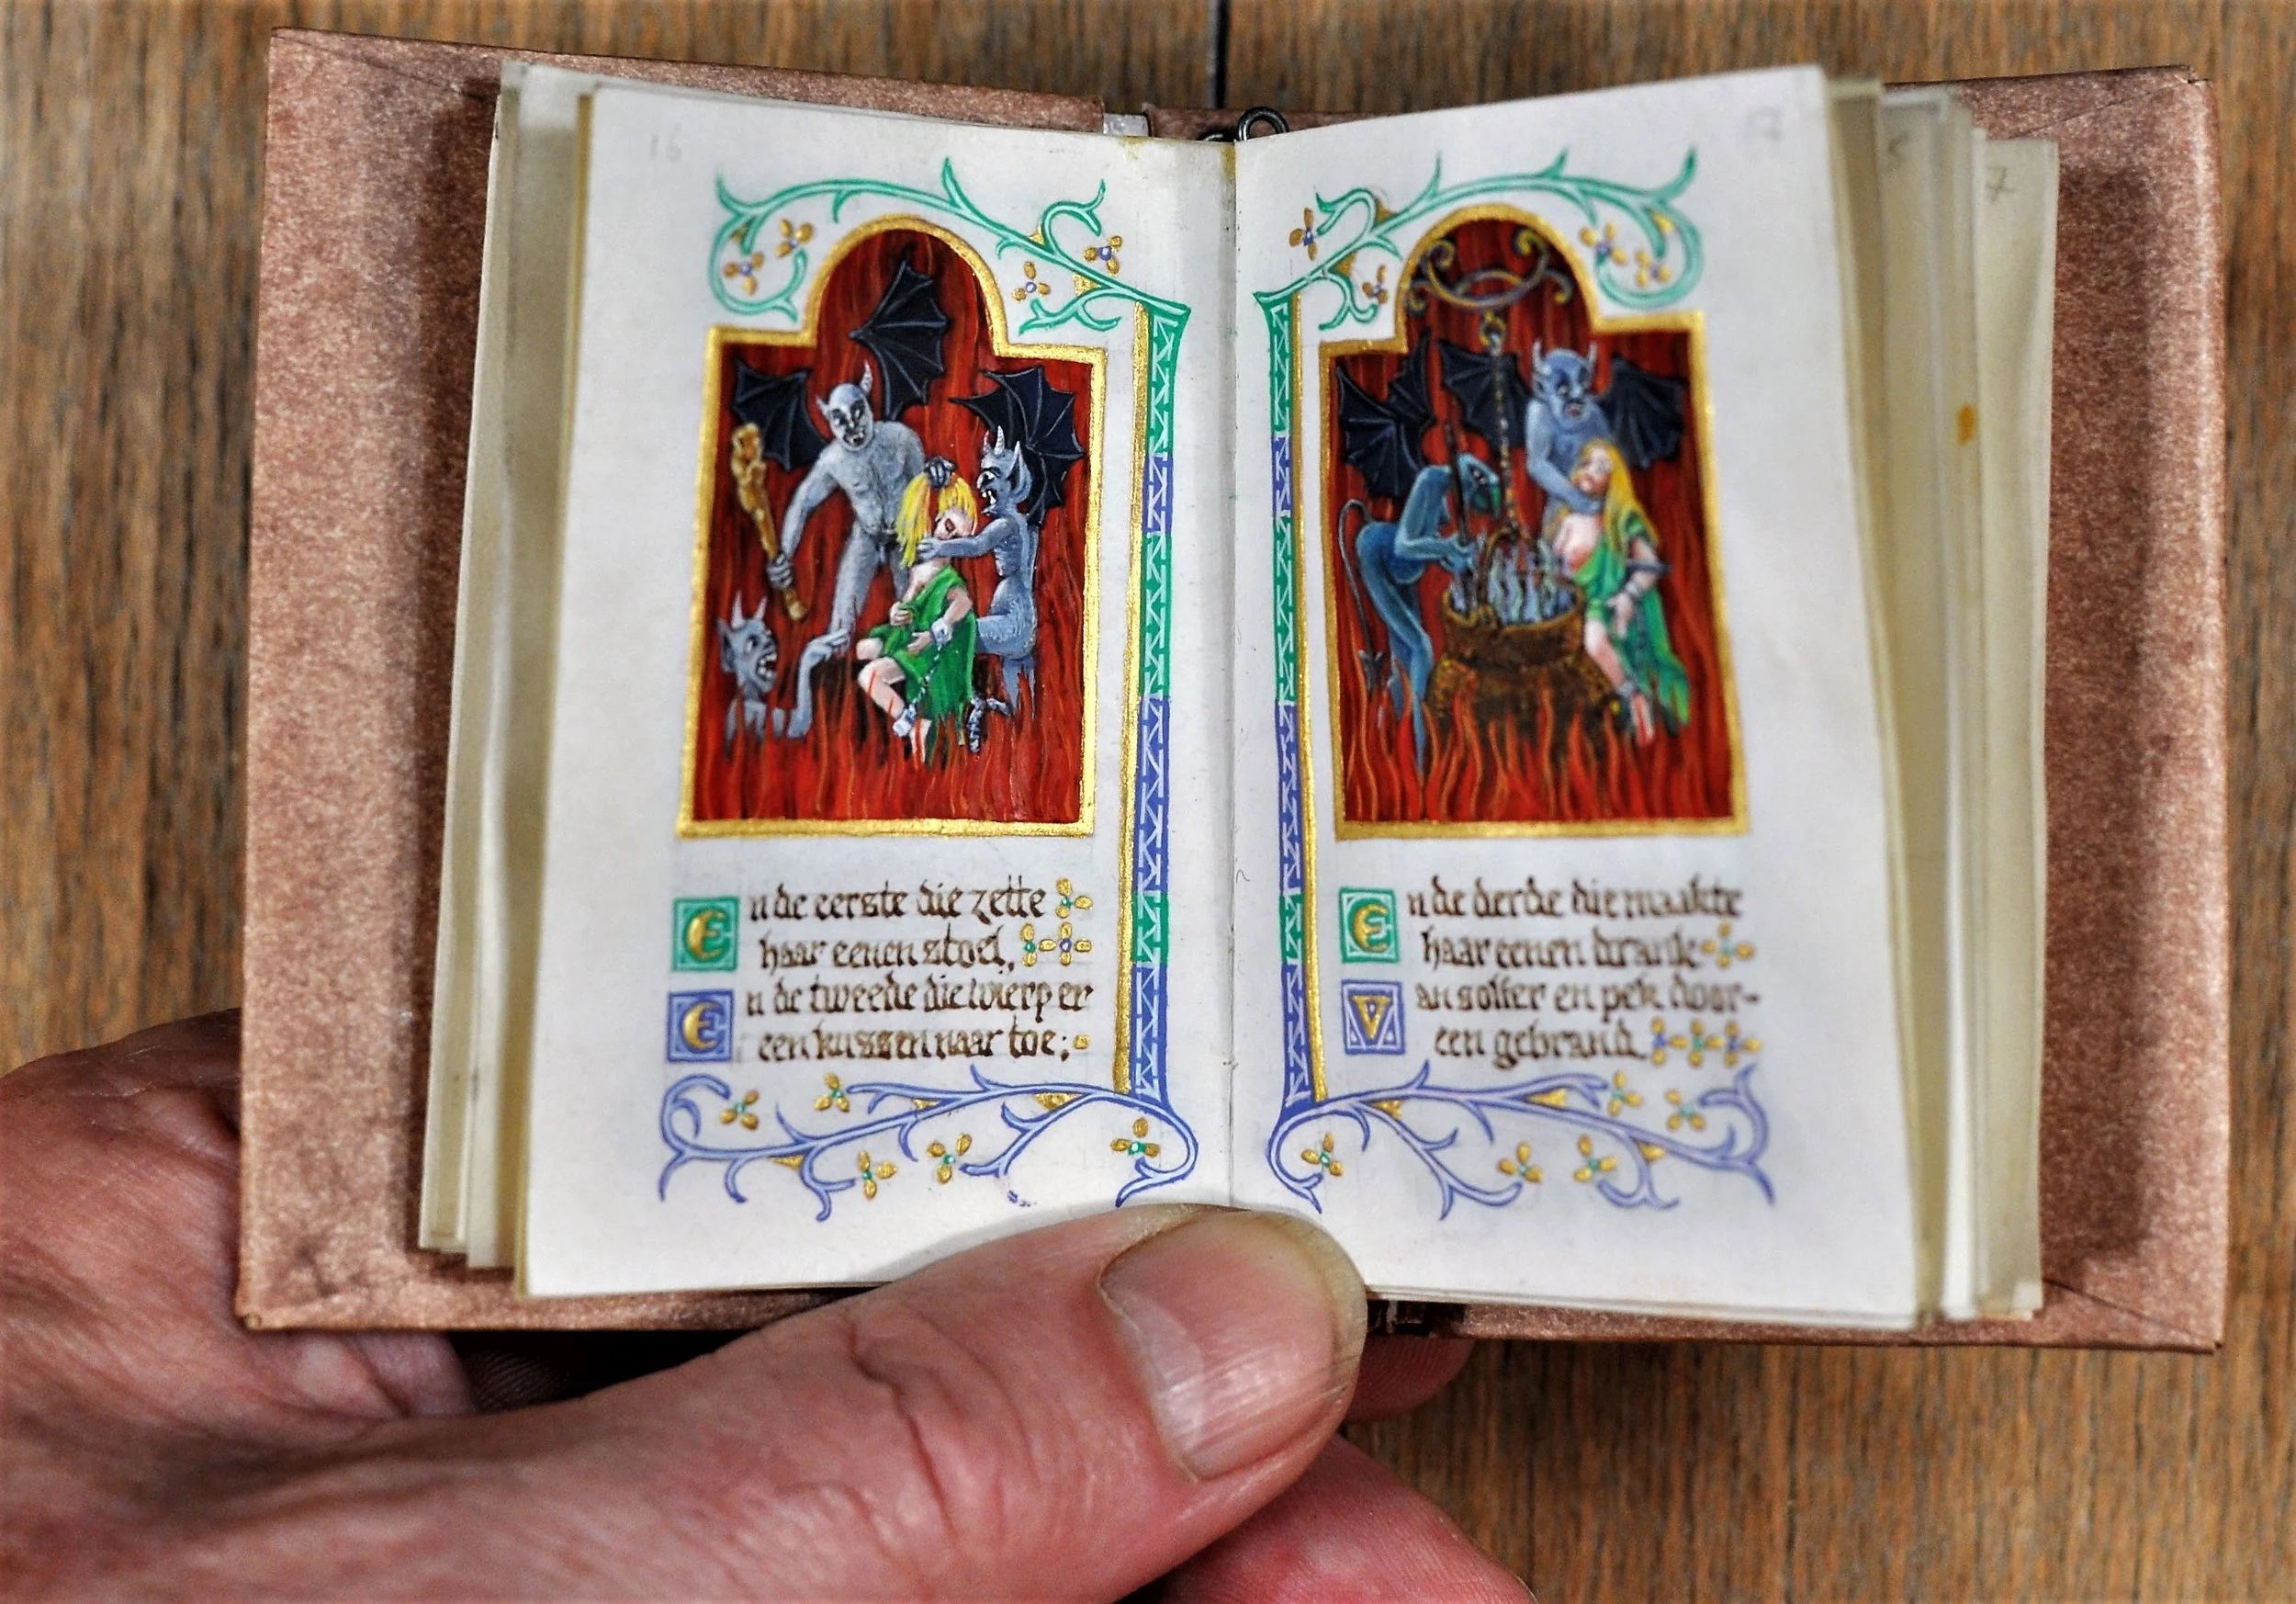 16
En de eerste die zette
haar eenen stoel,
En de tweede die wierp er
een kussen naar toe;
En de derde die maakte
haar eenen drank
Van solfer en pek door-
een gebrand.
7